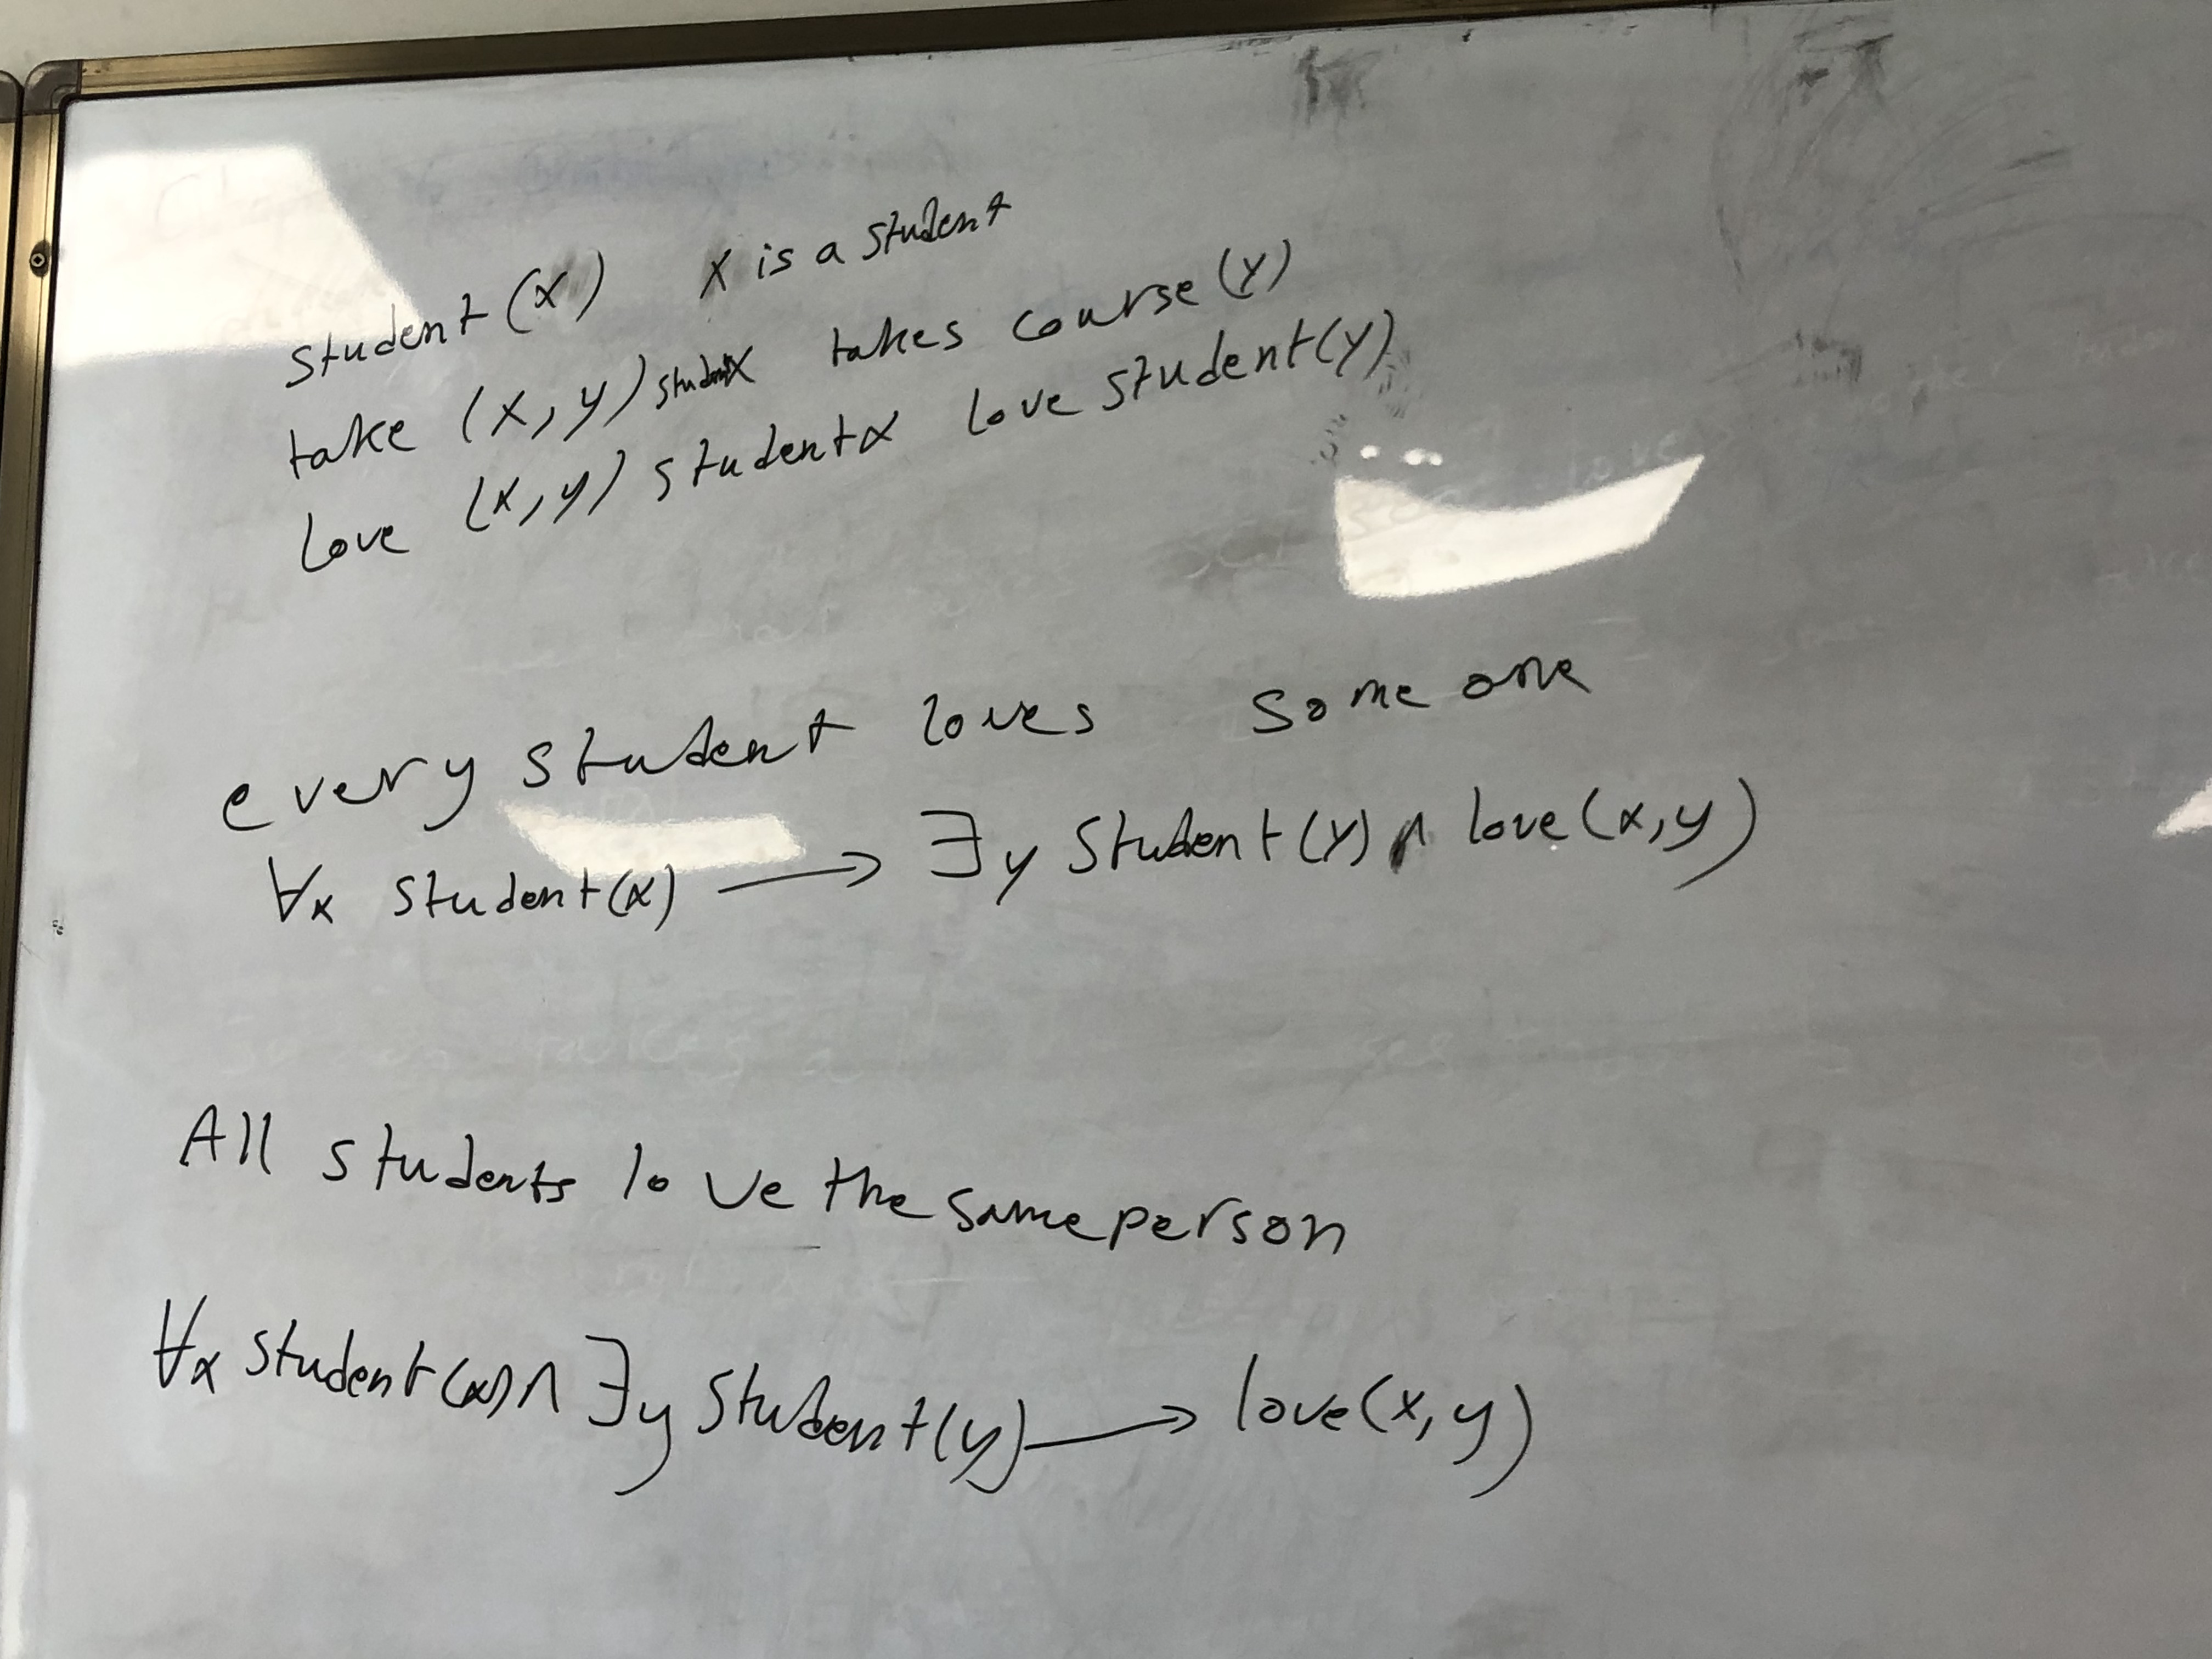 student (x) x is a student
take (x, y) student x takes course (y)
love (x, y) student x love student (y)
every student loves some one
∀x student(x) → ∃y student(y) ∧ love(x, y)
All students love the same person
∀x student(x) ∧ ∃y student(y) → love(x, y)